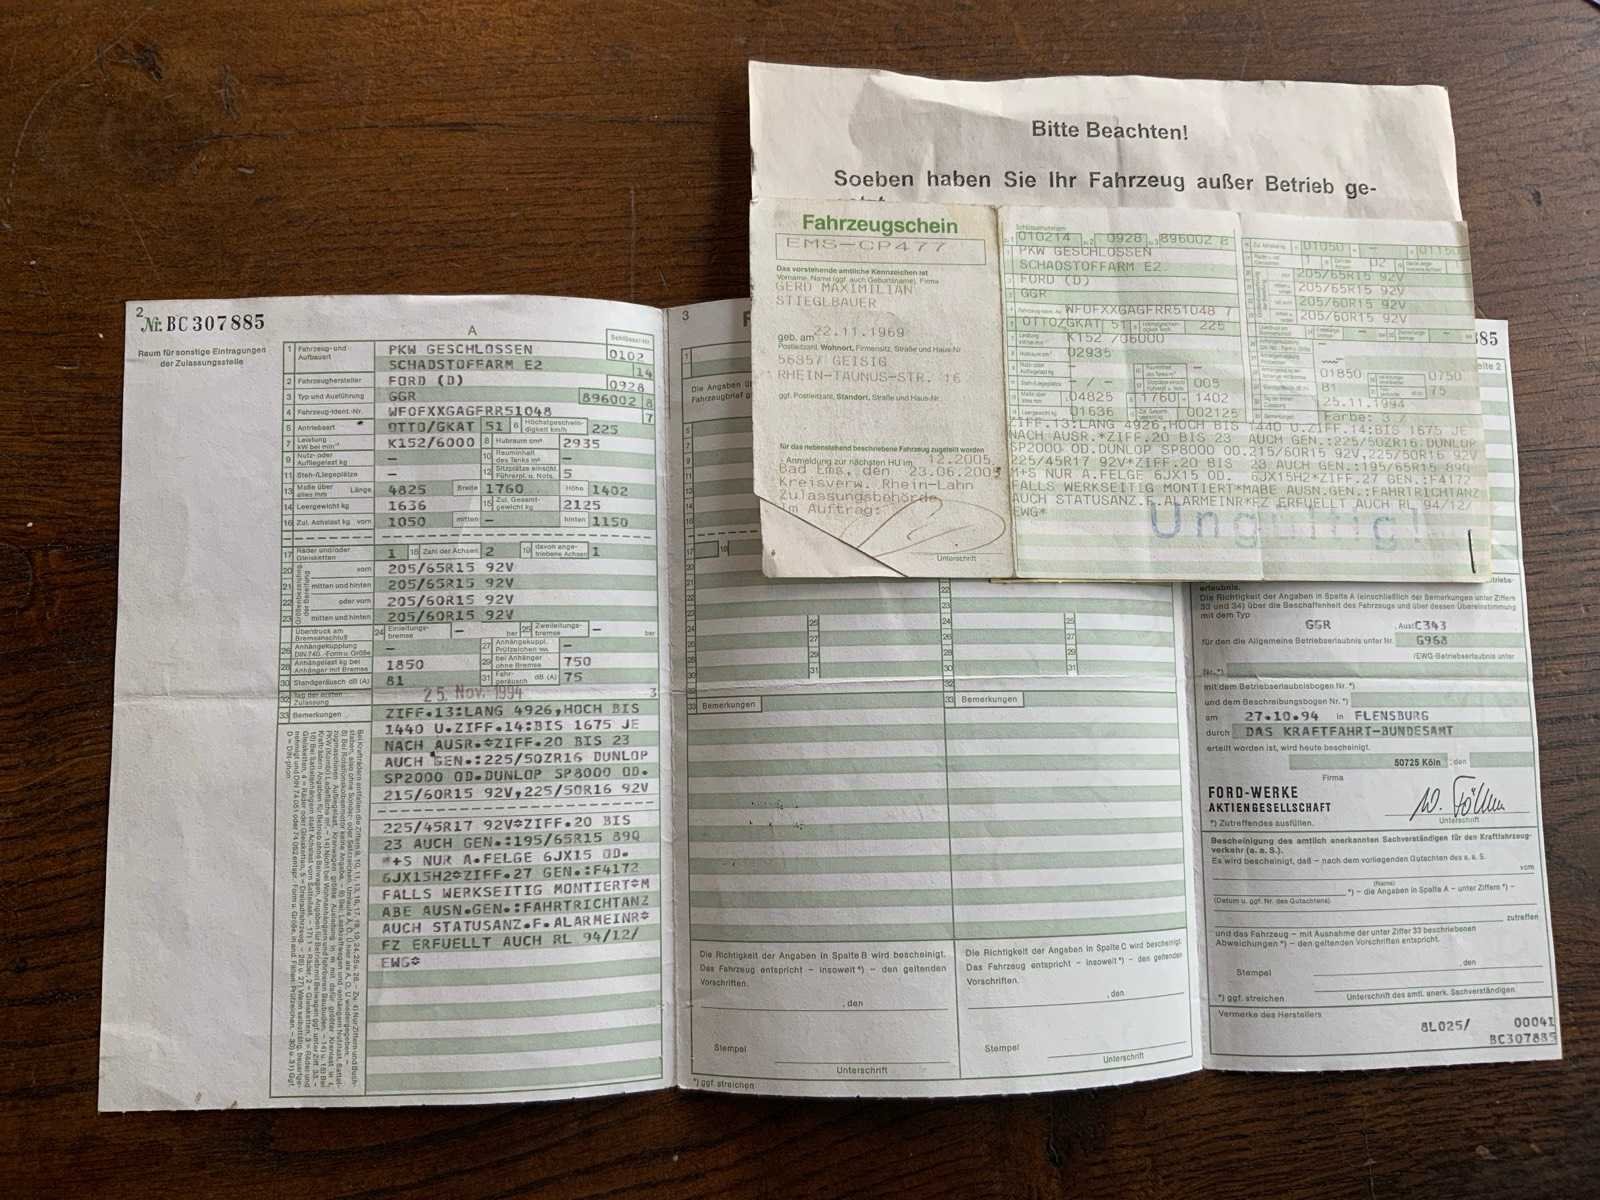 Bitte Beachten!
Soeben haben Sie Ihr Fahrzeug außer Betrieb ge-
Fahrzeugschein
EMS-CP477
Das vorstehende amtliche Kennzeichen ist
Vorname, Name (ggf. auch Geburtsname), Firma
GERD MAXIMILIAN
STIEGLBAUER
geb. am 22.11.1969
Postleitzahl, Wohnort, Firmensitz, Straße und Haus-Nr.
56357 GEISIG
RHEIN-TAUNUS-STR. 16
ggf. Postleitzahl, Standort, Straße und Haus-Nr.
für das nebenstehend beschriebene Fahrzeug zugeteilt worden
Anmeldung zur nächsten HU im 12.2005
Bad Ems, den 23.06.2003
Kreisverw. Rhein-Lahn
Zulassungsbehörde
im Auftrag:
Unterschrift
010214 0928 896002 8
PKW GESCHLOSSEN
SCHADSTOFFARM E2
FORD (D)
GGR
WF0FXXGAGFRR51048 7
OTTO/GKAT 51 225
K152 /06000
02935
- / - 005
04825 1760 - 1402
01636 002125
01050 - - 01150
1 02
205/65R15 92V
205/65R15 92V
205/60R15 92V
205/60R15 92V
01850 0750
81 75
25.11.1994
Farbe:
ZIFF.13:LANG 4926,HOCH BIS 1440 U.ZIFF.14:BIS 1675 JE
NACH AUSR.*ZIFF.20 BIS 23 AUCH GEN.:225/50ZR16 DUNLOP
SP2000 OD.DUNLOP SP8000 OD.215/60R15 92V,225/50R16 92V
225/45R17 92V*ZIFF.20 BIS 23 AUCH GEN.:195/65R15 89Q
M+S NUR A.FELGE 6JX15 OD. 6JX15H2*ZIFF.27 GEN.:F4172
FALLS WERKSEITIG MONTIERT*MABE AUSN.GEN.:FAHRTRICHTANZ
AUCH STATUSANZ.F.ALARMEINR*FZ ERFUELLT AUCH RL 94/12/
EWG*
Ungültig!
2
Nr. BC 307885
Raum für sonstige Eintragungen
der Zulassungsstelle
A
Schlüssel-Nr.
1 Fahrzeug- und Aufbauart PKW GESCHLOSSEN 0102
SCHADSTOFFARM E2 14
2 Fahrzeughersteller FORD (D) 0928
3 Typ und Ausführung GGR 896002 8
4 Fahrzeug-Ident.-Nr. WF0FXXGAGFRR51048 7
5 Antriebsart OTTO/GKAT 51 6 Höchstgeschwindigkeit km/h 225
7 Leistung kW bei min⁻¹ K152/6000 8 Hubraum cm³ 2935
9 Nutz- oder Aufliegelast kg - 10 Rauminhalt des Tanks m³ -
11 Steh-/Liegeplätze - 12 Sitzplätze einschl. Führerpl. u. Nots. 5
13 Maße über alles mm Länge 4825 Breite 1760 Höhe 1402
14 Leergewicht kg 1636 15 Zul. Gesamtgewicht kg 2125
16 Zul. Achslast kg vorn 1050 mitten - hinten 1150
17 Räder und/oder Gleisketten 1 18 Zahl der Achsen 2 19 davon angetriebene Achsen 1
20 vorn 205/65R15 92V
21 mitten und hinten 205/65R15 92V
22 oder vorn 205/60R15 92V
23 mitten und hinten 205/60R15 92V
Überdruck am Bremsanschluß 24 Einleitungsbremse - bar 25 Zweileitungsbremse - bar
26 Anhängekupplung DIN 740.-Form u. Größe - 27 Anhängekuppl. Prüfzeichen -
28 Anhängelast kg bei Anhänger mit Bremse 1850 29 bei Anhänger ohne Bremse 750
30 Standgeräusch dB (A) 81 31 Fahrgeräusch dB (A) 75
32 Tag der ersten Zulassung 25. Nov. 1994 3
33 Bemerkungen ZIFF.13:LANG 4926,HOCH BIS
1440 U.ZIFF.14:BIS 1675 JE
NACH AUSR.*ZIFF.20 BIS 23
AUCH GEN.:225/50ZR16 DUNLOP
SP2000 OD.DUNLOP SP8000 OD.
215/60R15 92V,225/50R16 92V
225/45R17 92V*ZIFF.20 BIS
23 AUCH GEN.:195/65R15 89Q
M+S NUR A.FELGE 6JX15 OD.
6JX15H2*ZIFF.27 GEN.:F4172
FALLS WERKSEITIG MONTIERT*M
ABE AUSN.GEN.:FAHRTRICHTANZ
AUCH STATUSANZ.F.ALARMEINR*
FZ ERFUELLT AUCH RL 94/12/
EWG*
3
Die Angaben
Fahrzeugbrief
33 Bemerkungen
33 Bemerkungen
Die Richtigkeit der Angaben in Spalte B wird bescheinigt.
Das Fahrzeug entspricht – insoweit*) – den geltenden
Vorschriften.
, den
Stempel
Unterschrift
*) ggf. streichen
Die Richtigkeit der Angaben in Spalte C wird bescheinigt.
Das Fahrzeug entspricht – insoweit*) – den geltenden
Vorschriften.
, den
Stempel
Unterschrift
885
erlaubnis.
Die Richtigkeit der Angaben in Spalte A (einschließlich der Bemerkungen unter Ziffern
33 und 34) über die Beschaffenheit des Fahrzeugs und über dessen Übereinstimmung
mit dem Typ
GGR , Ausf. C343
für den die Allgemeine Betriebserlaubnis unter Nr. G968
/EWG-Betriebserlaubnis unter
Nr.*)
mit dem Betriebserlaubnisbogen Nr.*)
und dem Beschreibungsbogen Nr.*)
am 27.10.94 in FLENSBURG
durch DAS KRAFTFAHRT-BUNDESAMT
erteilt worden ist, wird heute bescheinigt.
50725 Köln , den
Firma
FORD-WERKE
AKTIENGESELLSCHAFT
Unterschrift
*) Zutreffendes ausfüllen.
Bescheinigung des amtlich anerkannten Sachverständigen für den Kraftfahrzeug-
verkehr (a. a. S.).
Es wird bescheinigt, daß – nach dem vorliegenden Gutachten des a. a. S.
vom
(Name)
*) – die Angaben in Spalte A – unter Ziffern *) –
(Datum u. ggf. Nr. des Gutachtens)
zutreffen
und das Fahrzeug – mit Ausnahme der unter Ziffer 33 beschriebenen
Abweichungen *) – den geltenden Vorschriften entspricht.
, den
Stempel
*) ggf. streichen
Unterschrift des amtl. anerk. Sachverständigen.
Vermerke des Herstellers
8L025/ 00041
BC307885